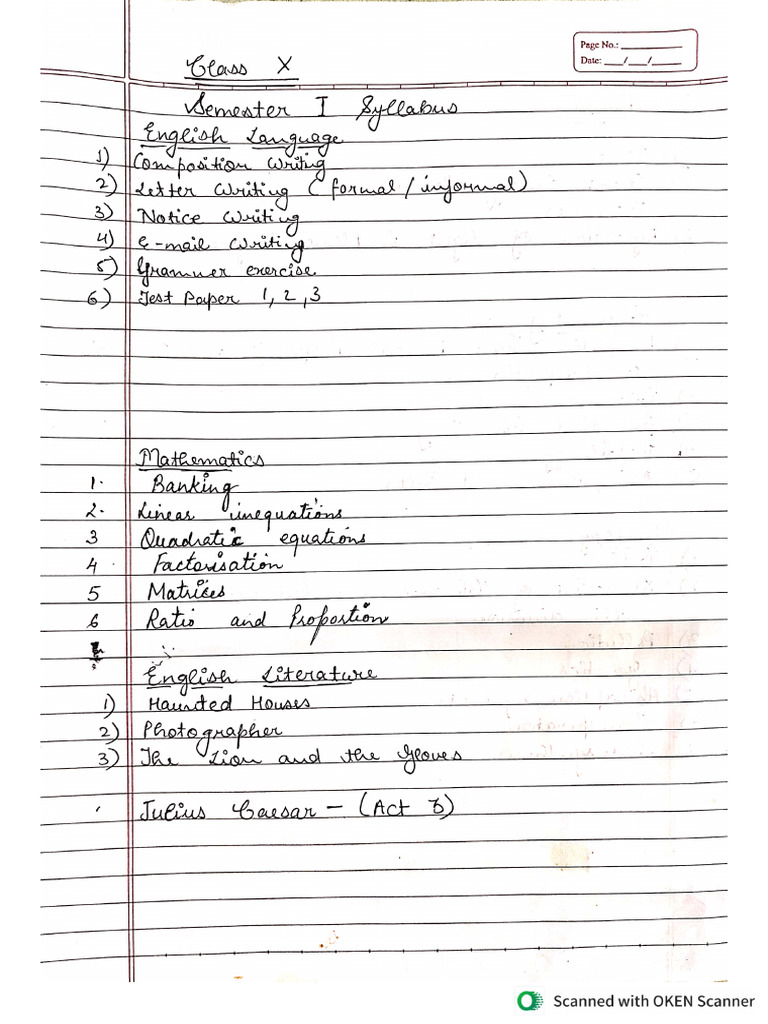 Page No.: ____________
Date: ___/___/_____
Class X
Semester I Syllabus
English Language
1) Composition Writing
2) Letter Writing (formal/informal)
3) Notice Writing
4) e-mail Writing
5) Grammer exercise
6) Test Paper 1, 2, 3
Mathematics
1. Banking
2. Linear inequations
3 Quadratic equations
4. Factorisation
5 Matrices
6 Ratio and Proportion
English Literature
1) Haunted Houses
2) Photographer
3) The Lion and the Gloves
Julius Caesar - (Act )
Scanned with OKEN Scanner